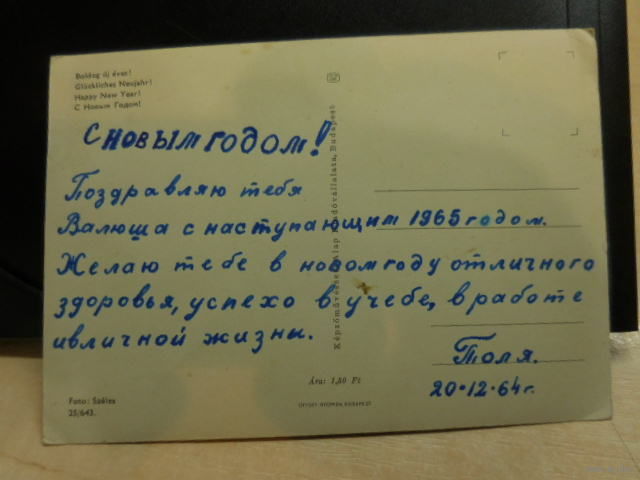 Boldog új évet!
Glückliches Neujahr!
Happy New Year!
С Новым Годом!
С НОВЫМ ГОДОМ!
Поздравляю тебя
Валюша с наступающим 1965 годом.
Желаю тебе в новом году отличного
здоровья, успехо в учебе, в работе
ивличной жизни.
Толя.
20·12·64 г.
Ára: 1,80 Ft
OFFSET NYOMDA BUDAPEST
Foto: Széles
25/643.
Budapest